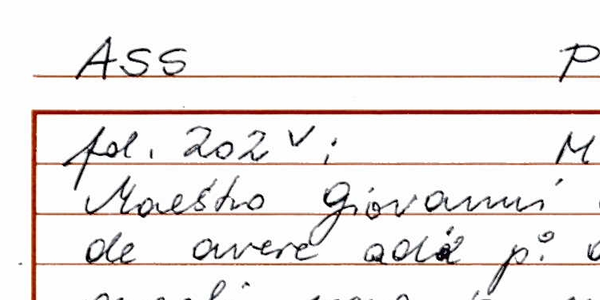 ASS P
fol. 202 v; M
Maestro Giovanni
de avere adì p.º